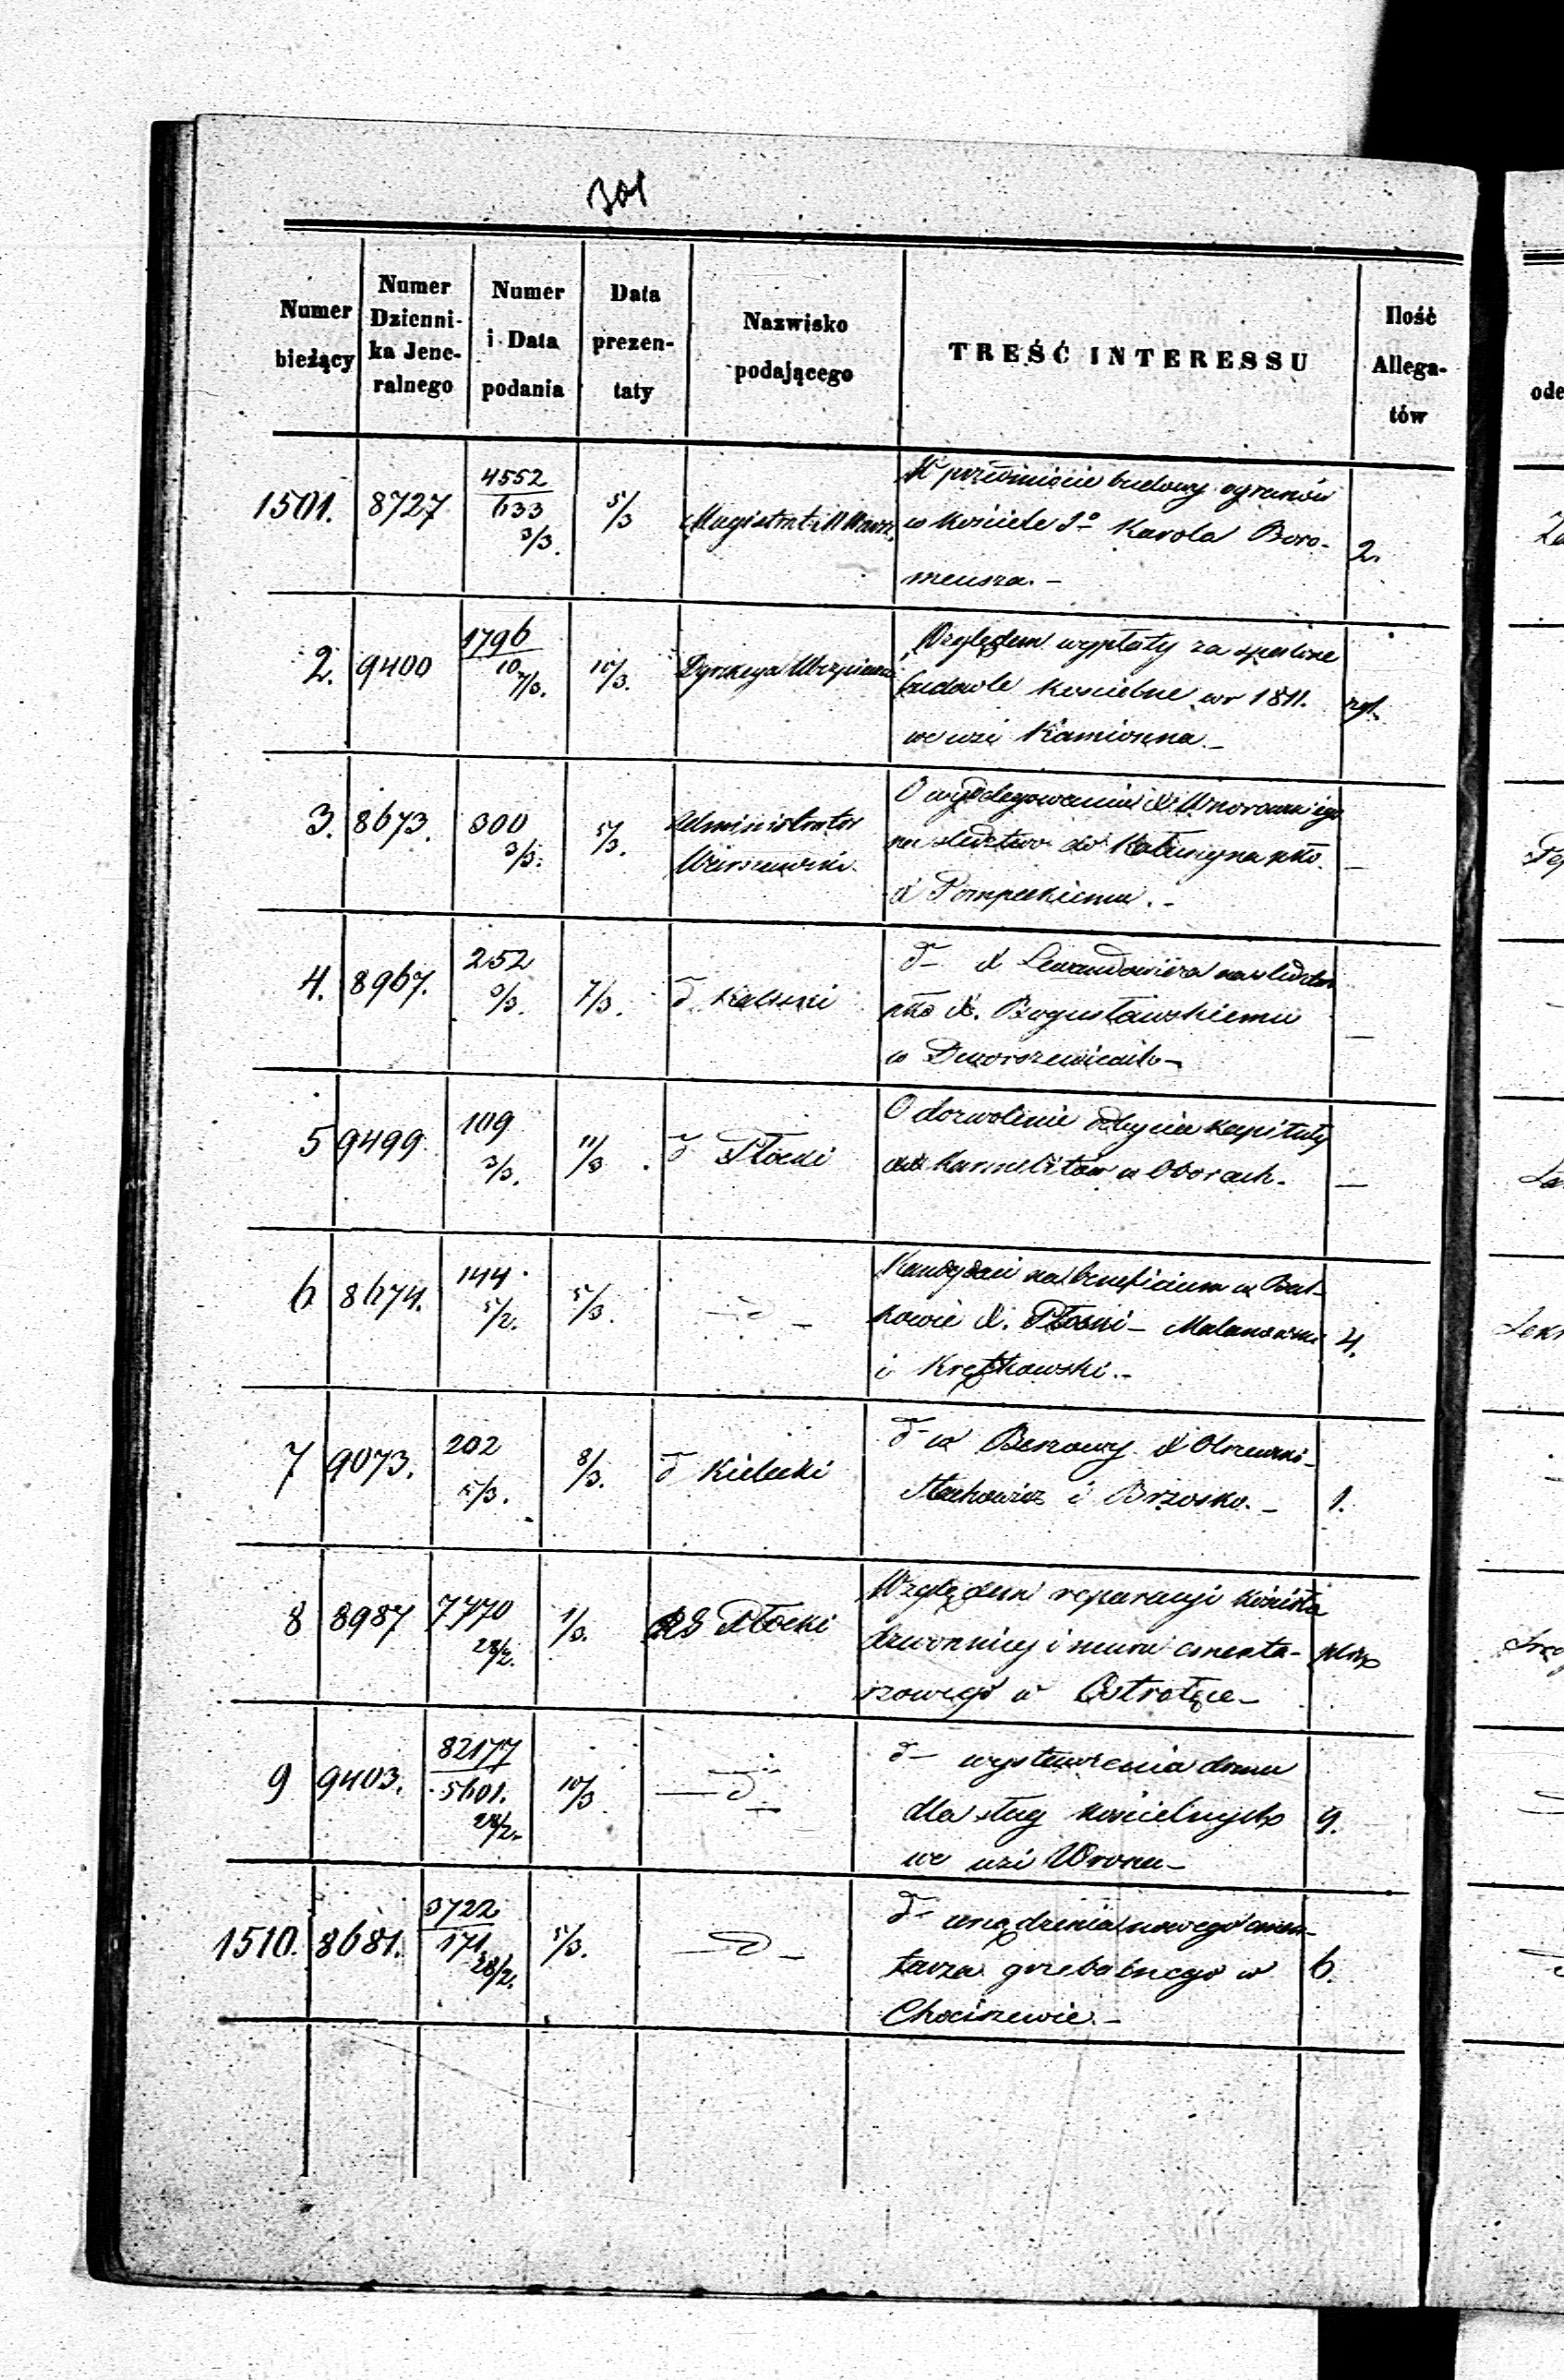 301
Numer bieżący | Numer Dzienni-ka Jene-ralnego | Numer i Data podania | Data prezen-taty | Nazwisko podającego | TREŚĆ INTERESSU | Ilość Allega-tów
1501. | 8727 | 4552/633 3/3. | 5/3 | Magistrat M Warsz. | budowy organów
w Kościele Sº Karola Boro- | 2.
meusza. –
2. | 9400 | 1796/10 7/3. | 10/3. | Dyrekcya Ubezpiecz | Względem wypłaty za spalone
budowle kościelne w r 1811.
we wsi Kamionna –
3. | 8673. | 300 3/3. | 5/3. | Administrator | O wydelegowanie X
Warszawski. | na śledztwo do Kałuszyna pko. | –
X Pompeckiemu. –
4. | 8967. | 252 3/3. | 7/3. | d Kaliski | d– X Lewandowicza na śledztwo
pko X. Bogusławskiemu | –
w Dworszewicach –
5 | 9499 | 109 3/3. | 11/3 | d Płocki | O dozwolenie odbycia kapituły
Karmelitów w Oborach. | –
6 | 8674. | 144 5/2. | 5/3. | –d– | Kandydaci na beneficium w
kowie X. Płoski – Malanowski | 4.
i Krętkowski. –
7 | 9073. | 202 5/3. | 8/3. | d Kielecki | d– w Beszowy X Olszewski –
Stachowicz i Brzosko. – | 1.
8 | 8987 | 7770 28/2. | 1/3. | RG Płocki | Względem reparacyi kościoła
dzwonnicy i muru cmenta-
rzowego w Ostrołęce –
9 | 9403. | 82177/5601. 28/2. | 10/3 | –d– | d– wystawienia domu
dla sług kościelnych | 9.
we wsi Wrona –
1510. | 8681. | 3722/171 28/2. | 5/3. | –d– | d– urządzenia nowego cmen-
tarza grzebalnego w | 6.
Chociszewie. –